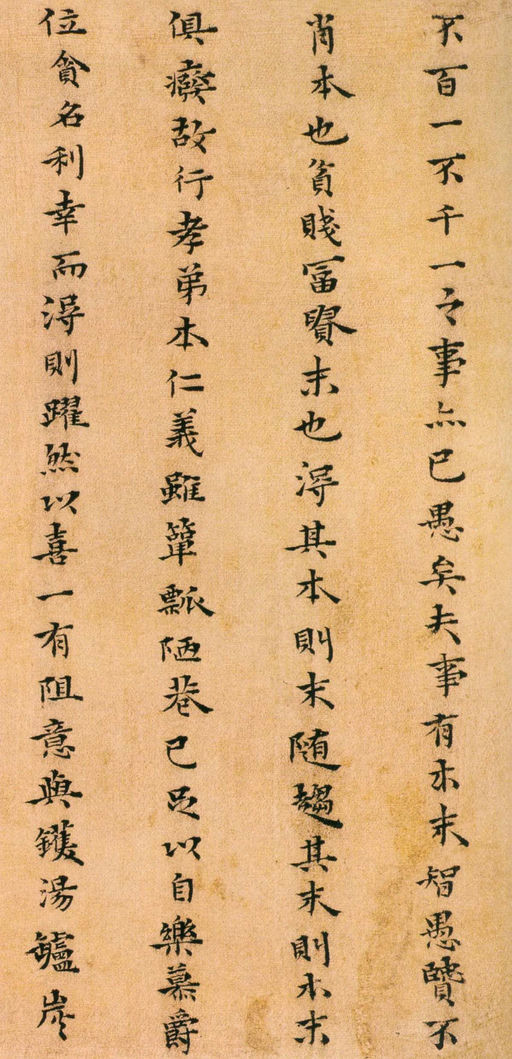 不百一不千一之事亦已愚矣夫事有本末智愚贒不
肖本也貧賤冨賢末也得其本則末随趨其末則本末
俱癈故行孝弟本仁義雖簞瓢陋巷已足以自樂慕爵
位貪名利幸而得則躍然以喜一有阻意與鑊湯鑪炭